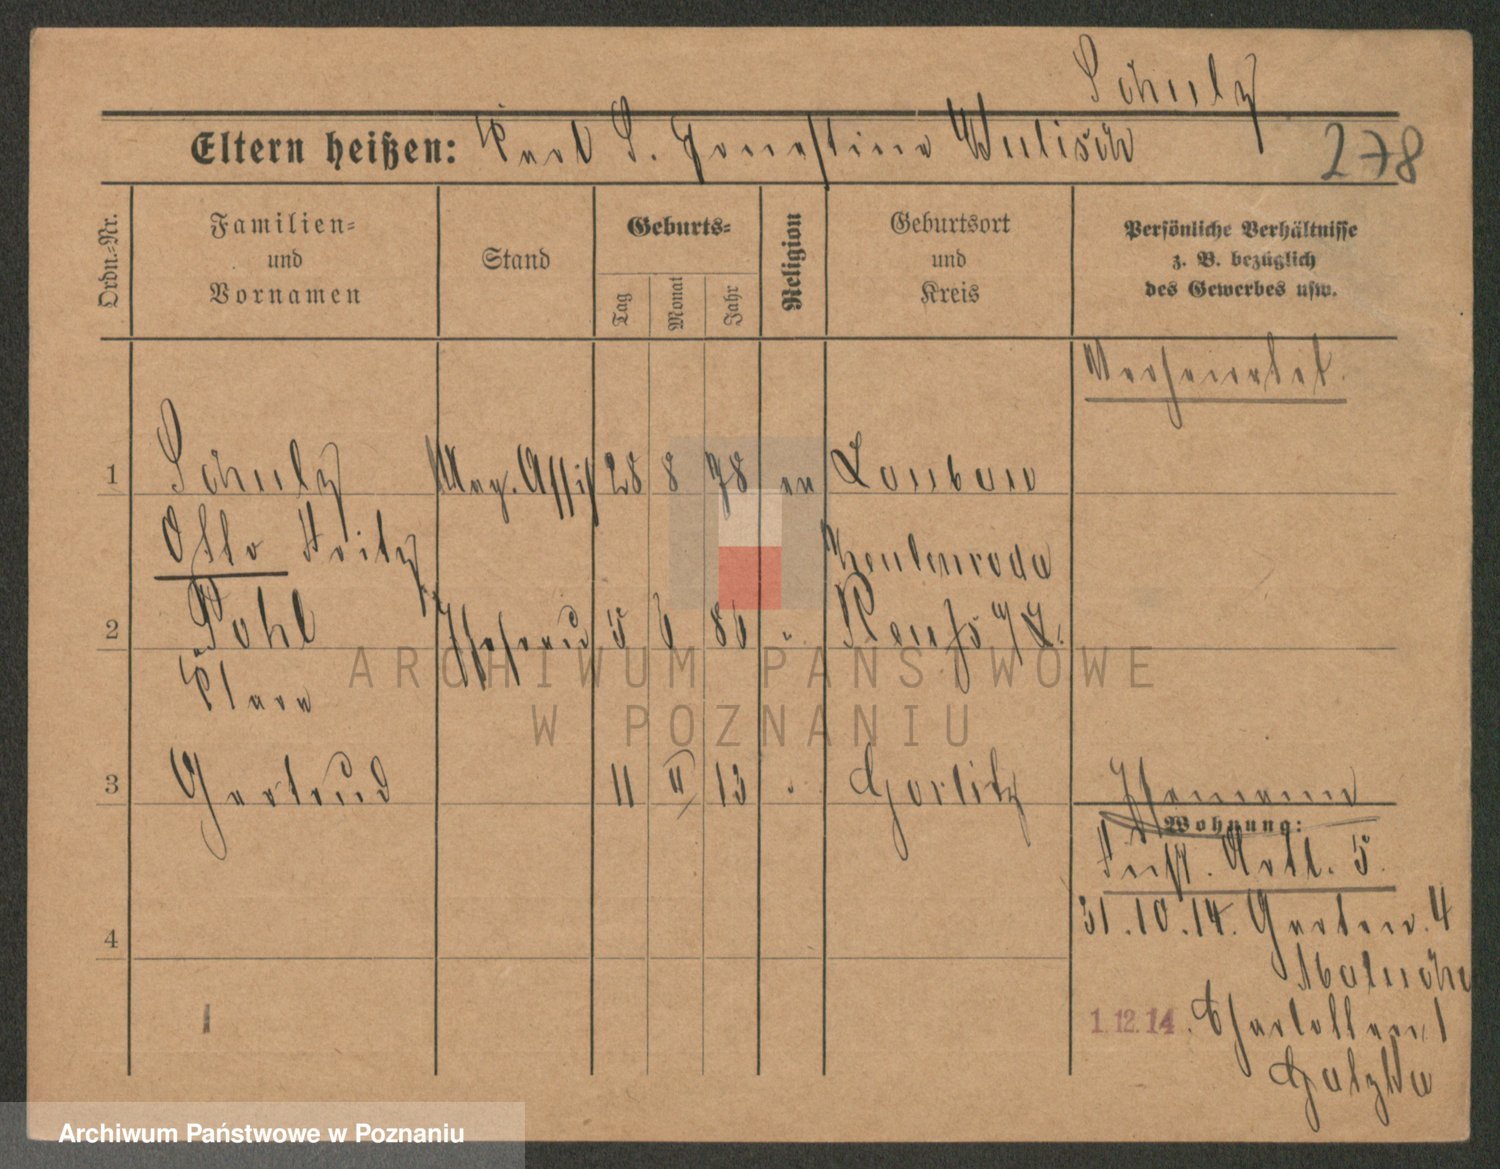 Schulz
Eltern heißen: Karl S. Ernestine Wulisch
278
Ordn.-Nr.
Familien- und Vornamen
Stand
Geburts-
Tag
Monat
Jahr
Religion
Geburtsort und Kreis
Persönliche Verhältnisse
z. B. bezüglich
des Gewerbes usw.
1 Schulz Mag. Assis 28 8 78 ev Lauban
Otto Fritz Zeulenroda
2 Pohl Ehefrau 5 6 86 " Reuß
Klara
3 Gertrud 11 II 13 " Görlitz
Wohnung:
5
4
31.10.14. Garten 4
1.12.14.
ARCHIWUM PAŃSTWOWE
W POZNANIU
Archiwum Państwowe w Poznaniu